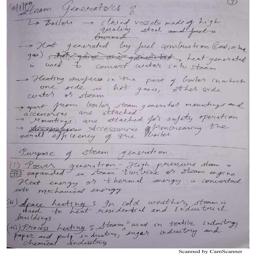 Steam Generators :
→ Boilers → closed vessels made of high
quality steel and fuel is
burned
→ Heat generated by fuel combustion (coal, oil or
gas) heat generated
is used to convert water into steam
→ Heating surface is the part of boiler in which
one side is hot gases, other side
water or steam
→ apart from boiler steam generator mountings and
accessories are attached
→ Mountings are attached for safety operation
→ Accessories → increasing the
overall efficiency of the Boiler
Purpose of steam generation
(i) Power generation → High pressure steam is
expanded in steam turbine or steam engine
Heat energy or thermal energy is converted
into mechanical energy
(ii) Space heating : In cold weather, steam is
used to heat residential and industrial
buildings
(iii) Process heating : steam used in textile industry,
paper and pulp industry, sugar industry and
chemical industries
Scanned by CamScanner